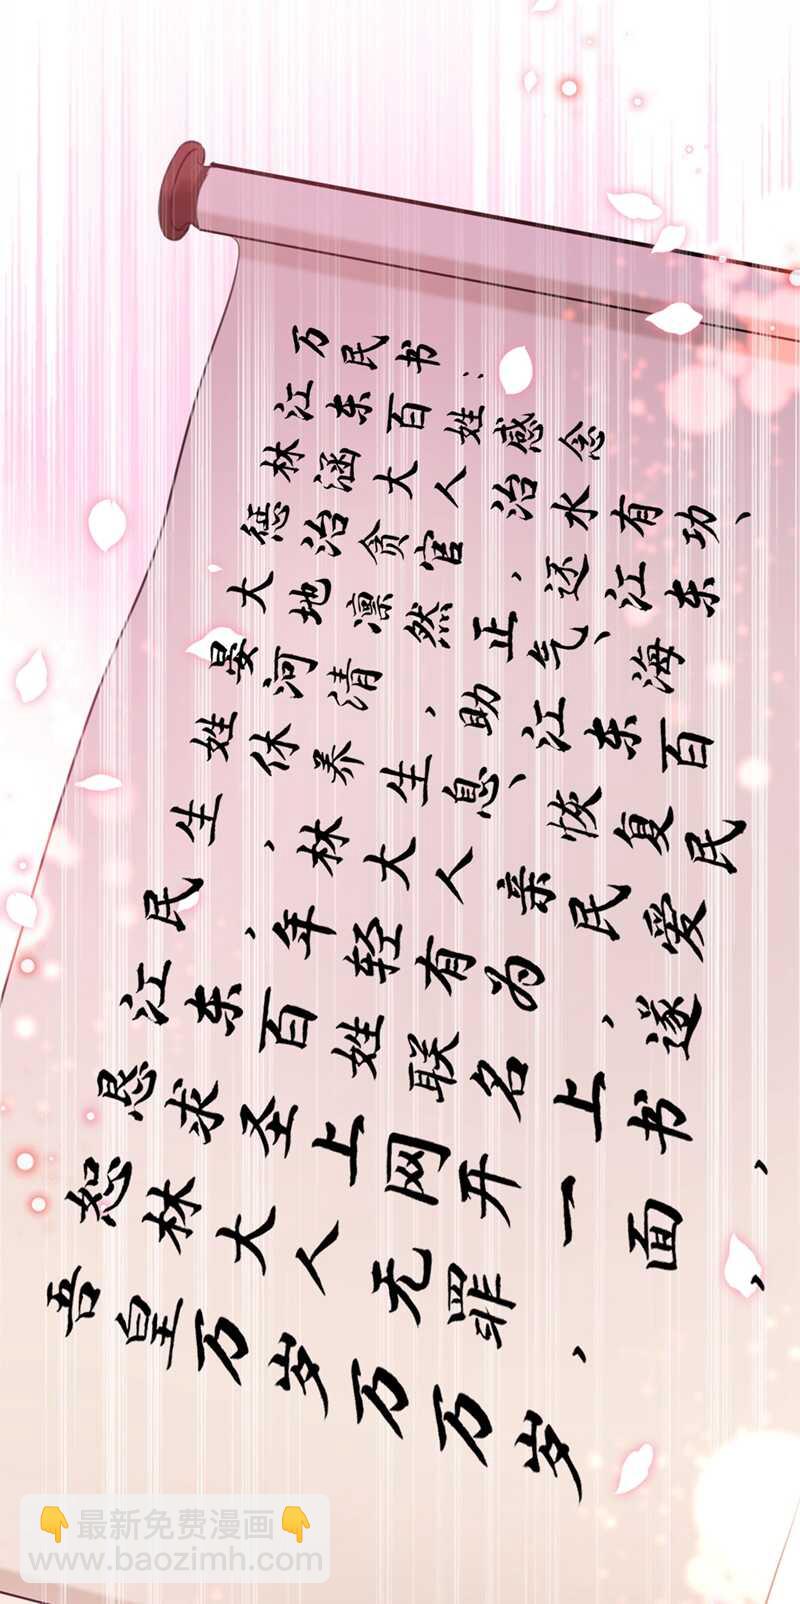 万民书:
江东百姓感念
林涵大人治水有功、
惩治贪官,还江东
大地凛然正气、海
晏河清,助江东百
姓休养生息、恢复民
生,林大人亲民爱
民,年轻有为,遂
江东百姓联名上书,
恳求圣上网开一面,
恕林大人无罪,
吾皇万岁万万岁
👇最新免费漫画👇
www.baozimh.com